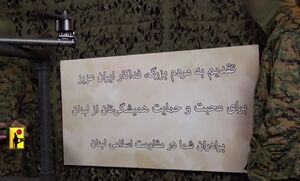 تقدیم به مردم بزرگ، فداکار ایران عزیز
برای محبت و حمایت همیشگی‌تان از لبنان
برادران شما در مقاومت اسلامی لبنان